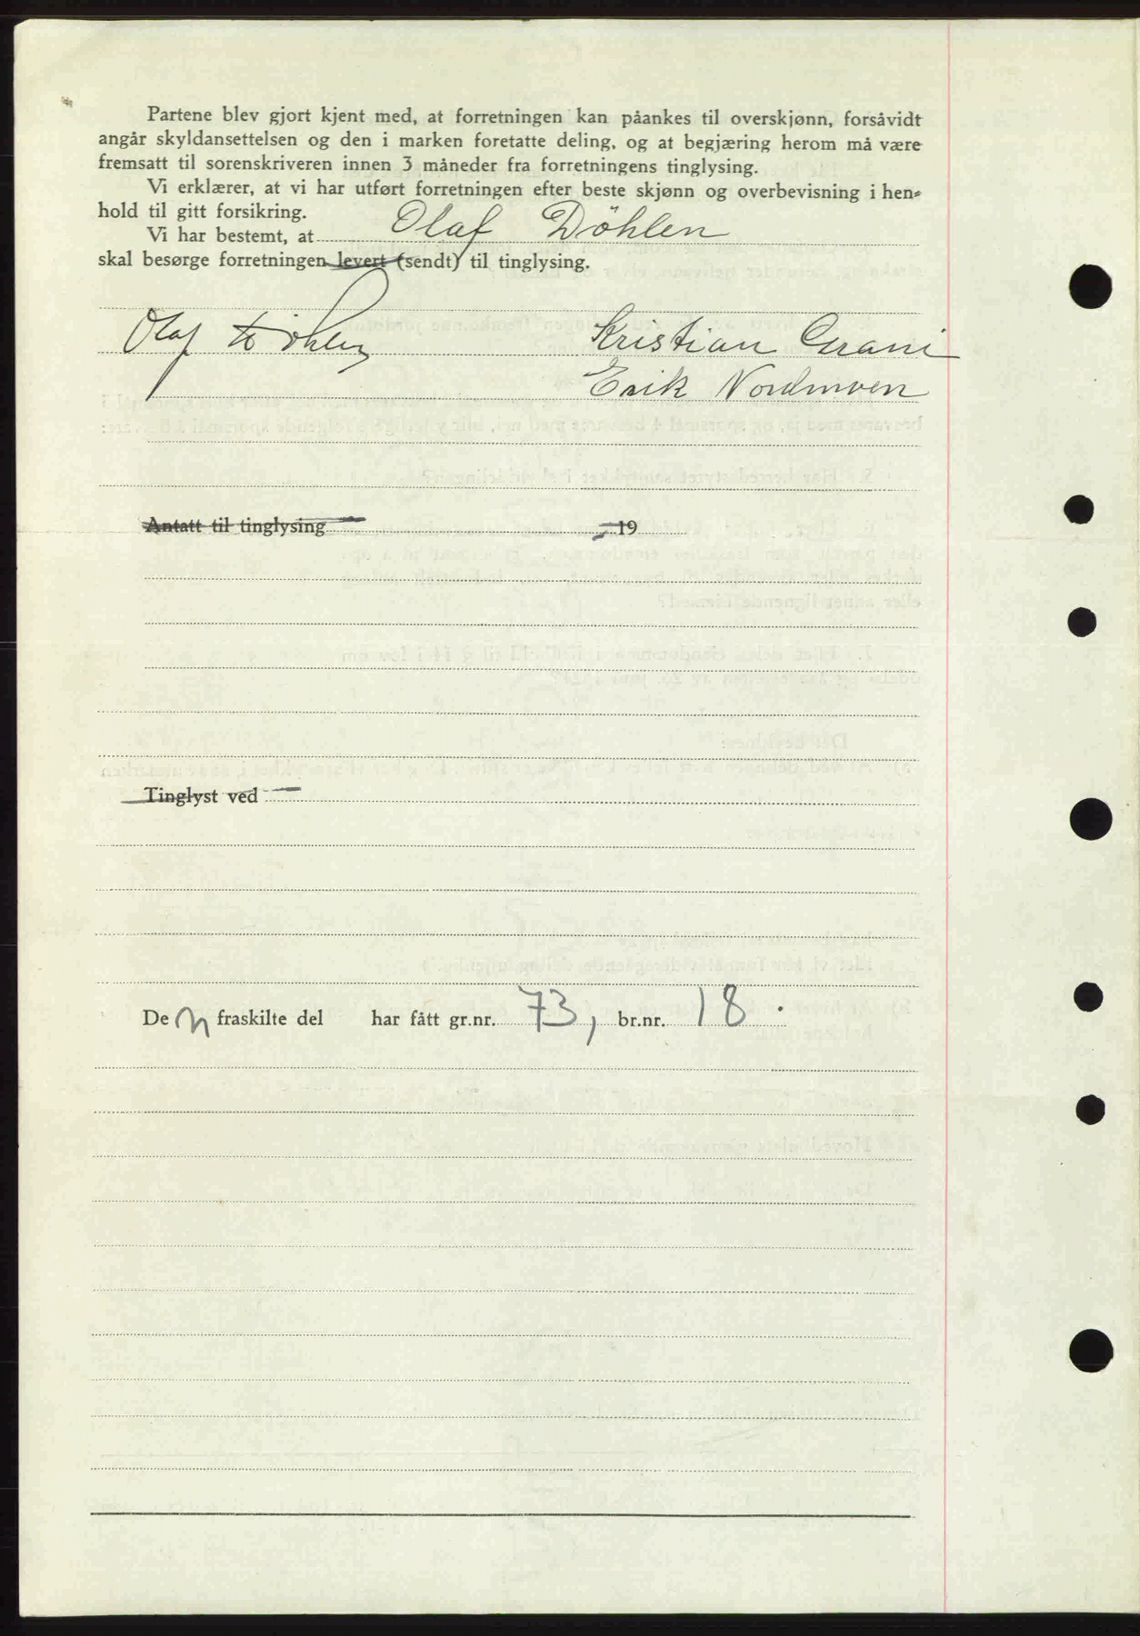 Partene blev gjort kjent med, at forretningen kan påankes til overskjønn, forsåvidt
angår skyldansettelsen og den i marken foretatte deling, og at begjæring herom må være
fremsatt til sorenskriveren innen 3 måneder fra forretningens tinglysing.
Vi erklærer, at vi har utført forretningen efter beste skjønn og overbevisning i hen-
hold til gitt forsikring.
Vi har bestemt, at Olaf Döhlen
skal besørge forretningen levert (sendt) til tinglysing.
Olaf Döhlen Kristian Grani
Erik Nordmoen
Antatt til tinglysing 19
Tinglyst ved
De n fraskilte del har fått gr.nr. 73, br.nr. 18.